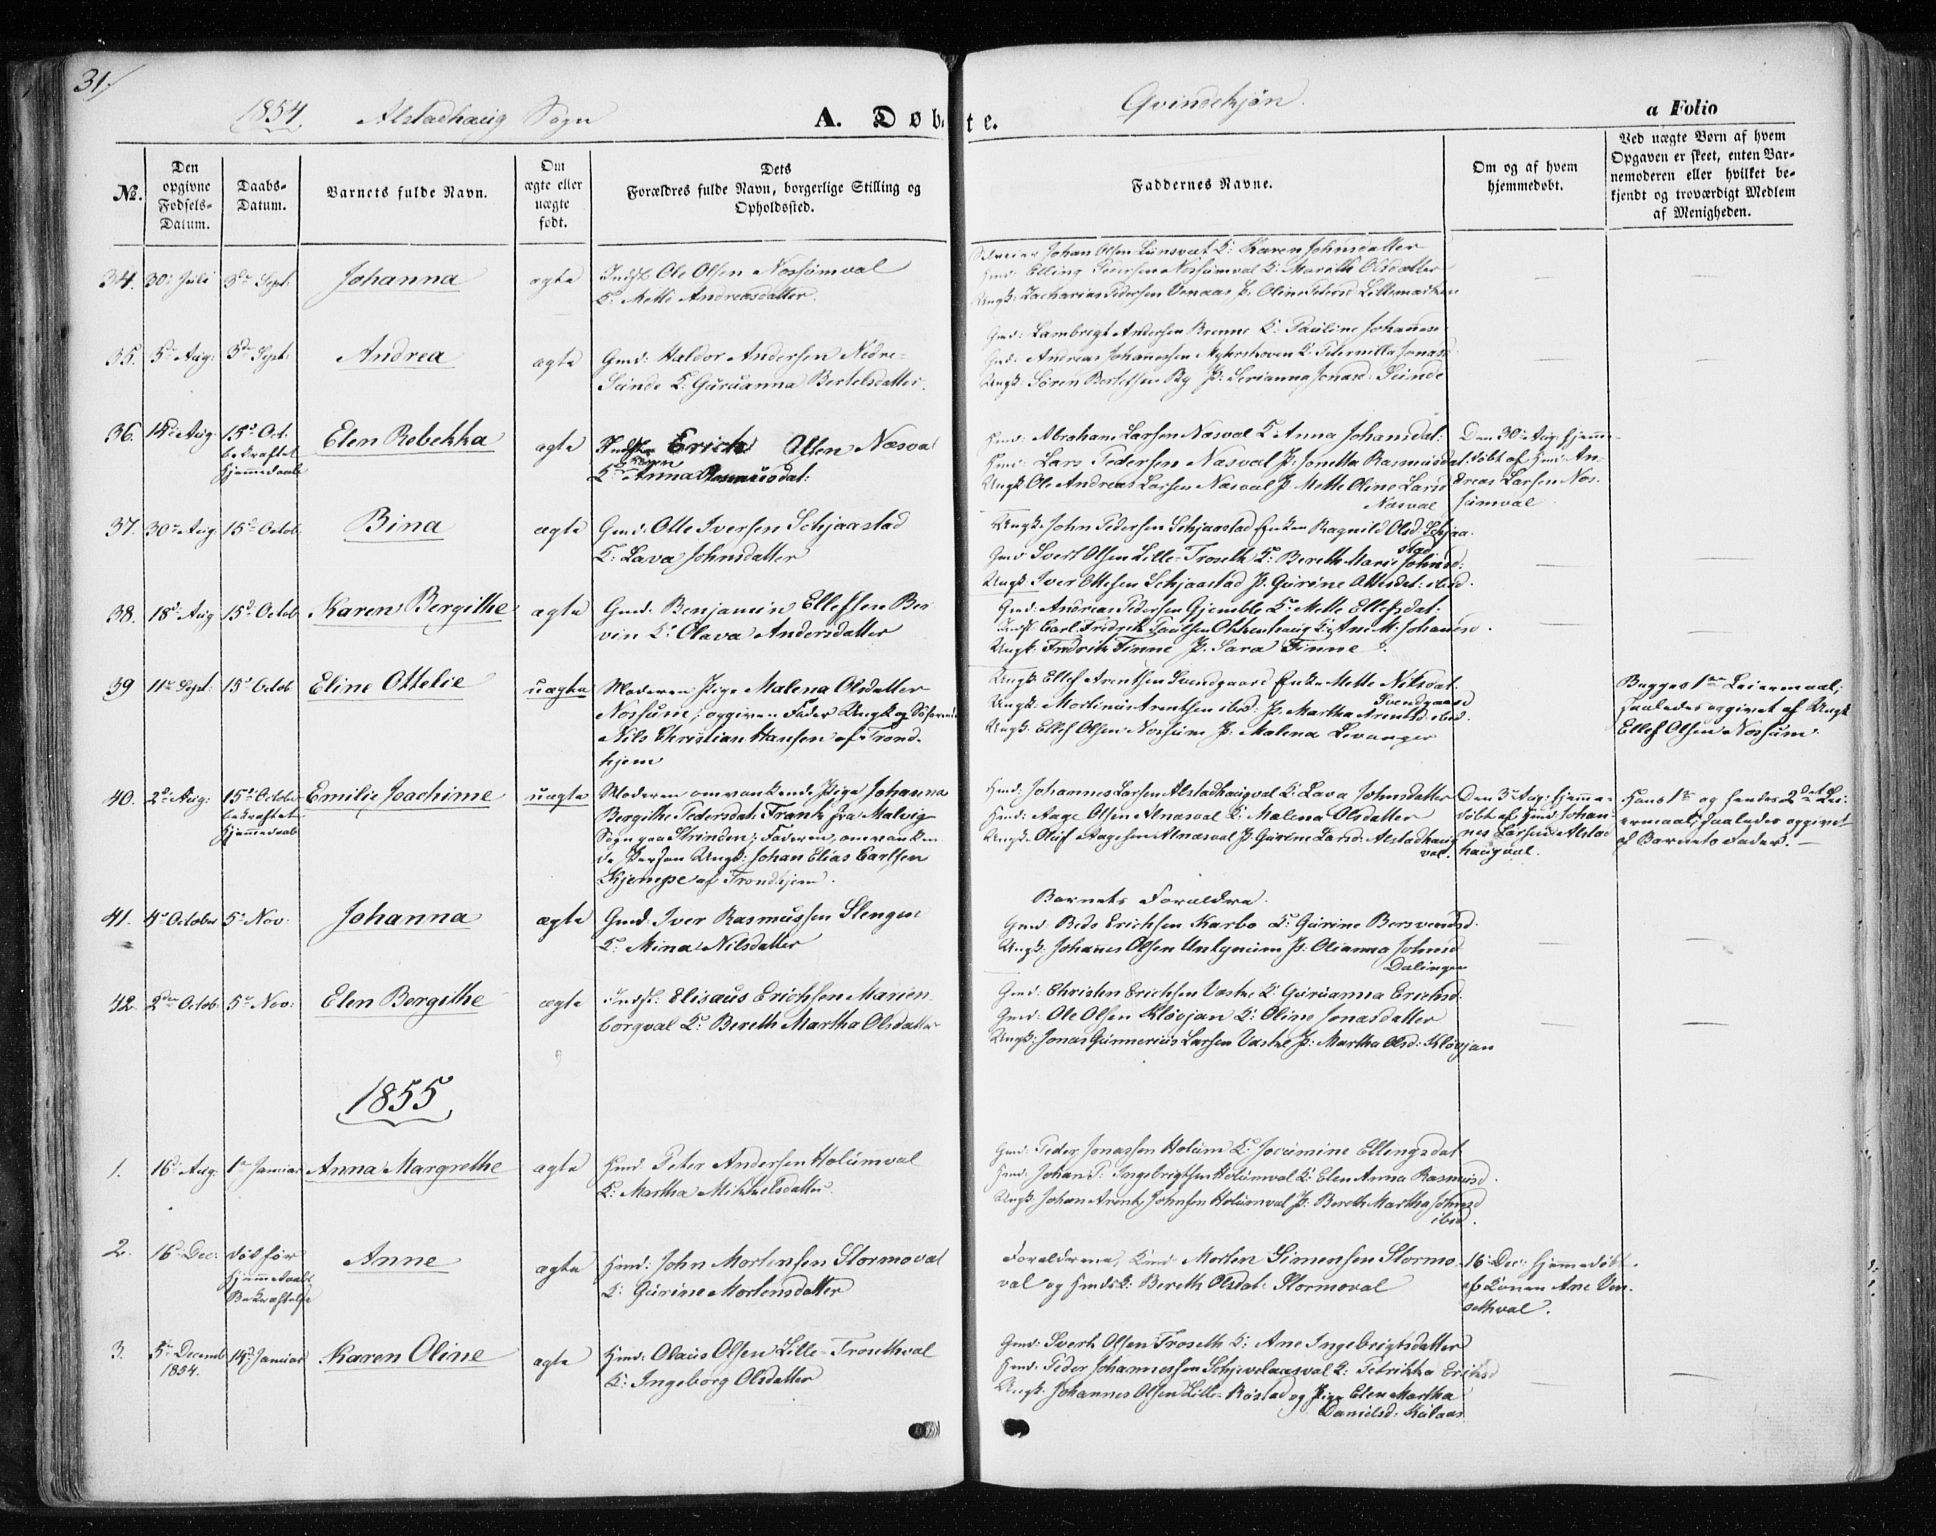 31
1854. Alstadhaug Sogn A. Døbte. Qvindekjøn. a Folio
No.
Den opgivne Fødsels-Datum.
Daabs-Datum.
Barnets fulde Navn.
Om ægte eller uægte født.
Dets Forældres fulde Navn, borgerlige Stilling og Opholdssted.
Faddernes Navne.
Om og af hvem hjemmedøbt.
Ved uægte Børn af hvem Opgaven er skeet, enten Barnemoderen eller hvilket bekjendt og troværdigt Medlem af Menigheden.
34. 30: Juli 3de Sept: Johanna ægte Indst. Ole Olsen Nossumval
K: Mette Andreasdatter.
Johan Olsen K: Karen Johnsdatter
Hmd: Elling Pedersen Nossumval K: Marith Olsdatter
Ungk: Zacharias Pedersen Venaas P. Oline Petersd
35. 5te Aug: 3de Sept: Andrea ægte Gmd: Haldor Andersen Nedre-
Sunde K. Guruanna Bertelsdatter.
Gmd: Lambregt Andersen Brenne K: Pauline Johannesd
Gmd: Andreas Johannessen K. Peternilla Jonasd
Ungk: Søren Bertelsen By P: Serianna Jonasd: Sunde
36. 14de Aug: 15de Oct. bekræftet Hjemmedaab Elen Rebekka ægte Indst Erich Olsen Næsval
K: Karen Anna Rasmusdat:
Hmd: Abraham Larsen Næsval K Anna Johansdat:
Hmd: Lars Pedersen Næsval P: Jonetta Rasmusdat:
Ungk: Ole Andreas Larsen Næsval P Mette Oline Larsd
Næsval
Den 30te Aug: hjemme-
døbt af Hmd: An-
dreas Larsen Nos-
sumval
37. 30te Aug: 15de Octob: Bina ægte Gmd: Otte Iversen Schjaastad
K: Lava Johnsdatter
Ungk: John Pedersen Schjaastad Enken Ragnild Olsd: Schjaa-
stad
Gmd Svert Olsen Lille-Troseth K: Bereth Marie Johnsd:
Ungk: Iver Ottesen Schjaastad P. Gurine Ottesdat: ibid.
38. 18de Aug 15de Octob Karen Bergithe ægte Gmd: Benjamin Ellefsen Ber
vin K: Olava Andersdatter
Gmd: Andreas Pedersen Gjemble K: Mette Ellefsdat:
Indst: Carl Fredrik Paulsen Okkenhaug K: Ane M: Johannesd.
Ungk: Fredrik Finne P. Sara Finne.
39 11te Sept: 15de Octob Eline Ottelie uægte Moderen Pige Malena Olsdatter
Nossum; opgiven Fader Ungk og Søfarende
Nils Christian Hansen af Trond-
hjem
Ungk: Ellef Arentsen Svendgaard Enke Mette Nilsdat.
Svendgaard
Ungk: Mortinus Arentsen ibid: P. Martha Arentsd: ibid.
Ungk: Ellef Olsen Nossum P. Malena Levanger
Begges 1ste Leiermaal;
saaledes opgivet af Ungk
Ellef Olsen Nossum.
40. 2de Aug: 15de October bekræftet Hjemmedaab Emilie Joachime uægte Moderen omvankende Pige Johanna
Bergithe Pedersdat: Frantz fra Malvig
Sogn paa Strinden; Faderen, omvanken-
de Person Ungk: Johan Elias Carlsen
Kjempe af Trondhjem.
Hmd: Johannes Larsen Alstadhaugval K: Lava Johnsdatter
Hmd: Aage Olsen Alnæsval K: Malena Olsdatter
Ungk: Oluf Aagesen Alnæsval P: Gurine Larsd: Alstadhaug
val.
Den 3de Aug: hjemme-
døbt af Hmd: Johan-
nes Larsen Alstad
haugval.
Hans 1ste og hendes 2det Lei-
ermaal; saaledes opgivet
af Barnets Fader.
41. 4de October 5te Nov: Johanna ægte Gmd: Iver Rasmussen Slengen
K: Mina Nilsdatter
Barnets Forældre.
Gmd: Beds Erichsen Karbø K: Gurine Bersvendsd.
Ungk: Johannes Olsen P: Olianna Johnsd
Dalingen
42. 2den Octob 5te Nov: Elen Bergithe ægte Indst: Elisæus Erichsen Marien-
borgval K: Bereth Martha Olsdatter
Gmd: Christen Erichsen Vastre K: Guruanna Erichsd.
Gmd: Ole Olsen Kløvjan K: Oline Jonasdatter
Ungk: Jonas Gunnerius Larsen P: Martha Olsd: Kløvjan
1855
1. 16de Aug: 1te Januar Anna Margrethe ægte Hmd Peter Andersen Holumval
K: Martha Mikkelsdatter.
Gmd: Peder Jonassen Holum K: Jocumine Ellingsdat
Hmd: Johan P: Ingebrigtsen Holumval K: Elen Anna Rasmusd.
Ungk: Johan Arent Johnsen Holumval P: Bereth Martha Johnsd
ibid.
2. 16de Dec: død før Hjemmedaabs Bekræftelse Anne ægte Hmd: John Mortensen Stormoval
K: Gurine Mortensdatter
Forældrene, Hmd Morten Simonsen Stormo-
val og Hmds K: Bereth Olsdat: Stormoval
16 Dec: hjemmedøbt
af Konen Ane Ven-
sethval.
3. 5te Decemb 1854. 14de Januar Karen Oline ægte Hmd: Olaus Olsen Lille-Trosethval
K: Ingeborg Olsdatter
Gmd: Svert Olsen Troseth K: Ane Ingebrigtsdatter
Hmd: Peder Johannessen Schjevelaasval K: Petrikka Erichsd
Ungk: Johannes Olsen Lille-Røstad og Pige Elen Martha
Danielsd: